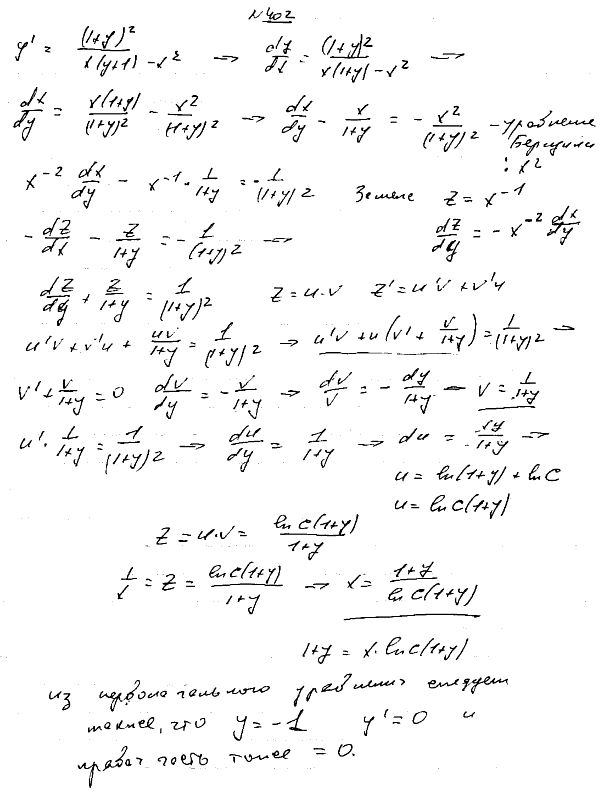 N 402
y' = (1+y)² / (x(y+1) - x²) → dy/dx = (1+y)² / (x(1+y) - x²) →
dx/dy = x(1+y)/(1+y)² - x²/(1+y)² → dx/dy - x/(1+y) = - x²/(1+y)² - уравнение
Бернулли
: x²
x⁻² dx/dy - x⁻¹ · 1/(1+y) = - 1/(1+y)² Замена z = x⁻¹
- dz/dx - z/(1+y) = - 1/(1+y)² → dz/dy = - x⁻² dx/dy
dz/dy + z/(1+y) = 1/(1+y)² z = u·v z' = u'v + v'u
u'v + v'u + uv/(1+y) = 1/(1+y)² → u'v + u(v' + v/(1+y)) = 1/(1+y)² →
v' + v/(1+y) = 0 dv/dy = - v/(1+y) → dv/v = - dy/(1+y) — v = 1/(1+y)
u' · 1/(1+y) = 1/(1+y)² → du/dy = 1/(1+y) → du = dy/(1+y) →
u = ln(1+y) + ln C
u = ln C(1+y)
z = u·v = ln C(1+y) / (1+y)
1/x = z = ln C(1+y) / (1+y) → x = (1+y) / ln C(1+y)
1+y = x · ln C(1+y)
из первоначального уравнения следует
также, что y = -1 y' = 0 и
правая часть тоже = 0.